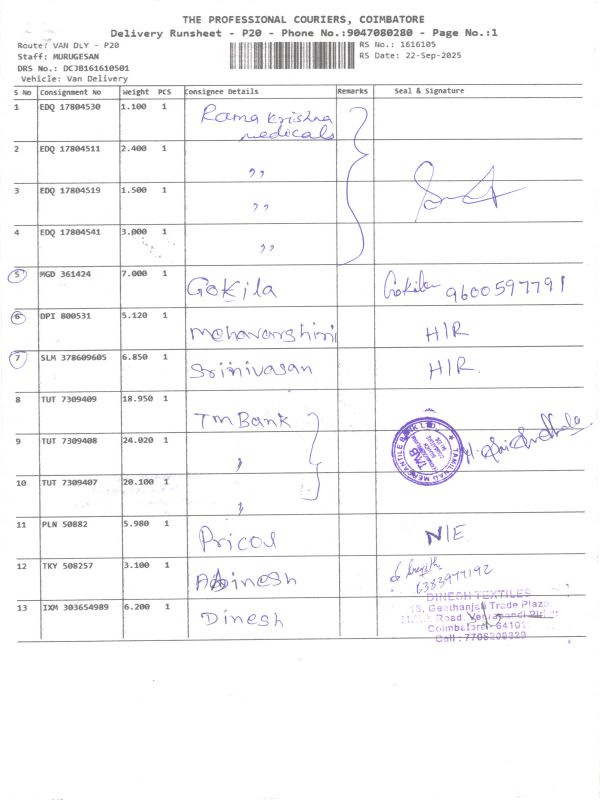 THE PROFESSIONAL COURIERS, COIMBATORE
Delivery Runsheet - P20 - Phone No.:9047080280 - Page No.:1
Route: VAN DLY - P20
Staff: MURUGESAN
DRS No.: DCJB161610501
Vehicle: Van Delivery
RS No.: 1616105
RS Date: 22-Sep-2025
S No Consignment No Weight PCS Consignee Details Remarks Seal & Signature
1 EDQ 17804530 1.100 1 Rama Krishna
medicals
2 EDQ 17804511 2.400 1 ,,
3 EDQ 17804519 1.500 1 ,,
4 EDQ 17804541 3.000 1 ,,
5 MGD 361424 7.000 1 Gokila Gokila 9600597791
6 DPI 800531 5.120 1 H/R
7 SLM 378609605 6.850 1 Srinivasan H/R.
8 TUT 7309409 18.950 1 TM Bank
9 TUT 7309408 24.020 1 ,
10 TUT 7309407 20.100 1 ,
TAMILNAD MERCANTILE BANK LTD.
TMB
11 PLN 50882 5.980 1 Pricol N/E
12 TKY 508257 3.100 1 Abinesh
6383977192
13 IXM 303654989 6.200 1 Dinesh
DINESH TEXTILES
18, Geethanjali Trade Plaza
Road,
Coimbatore
Call : 7708209320